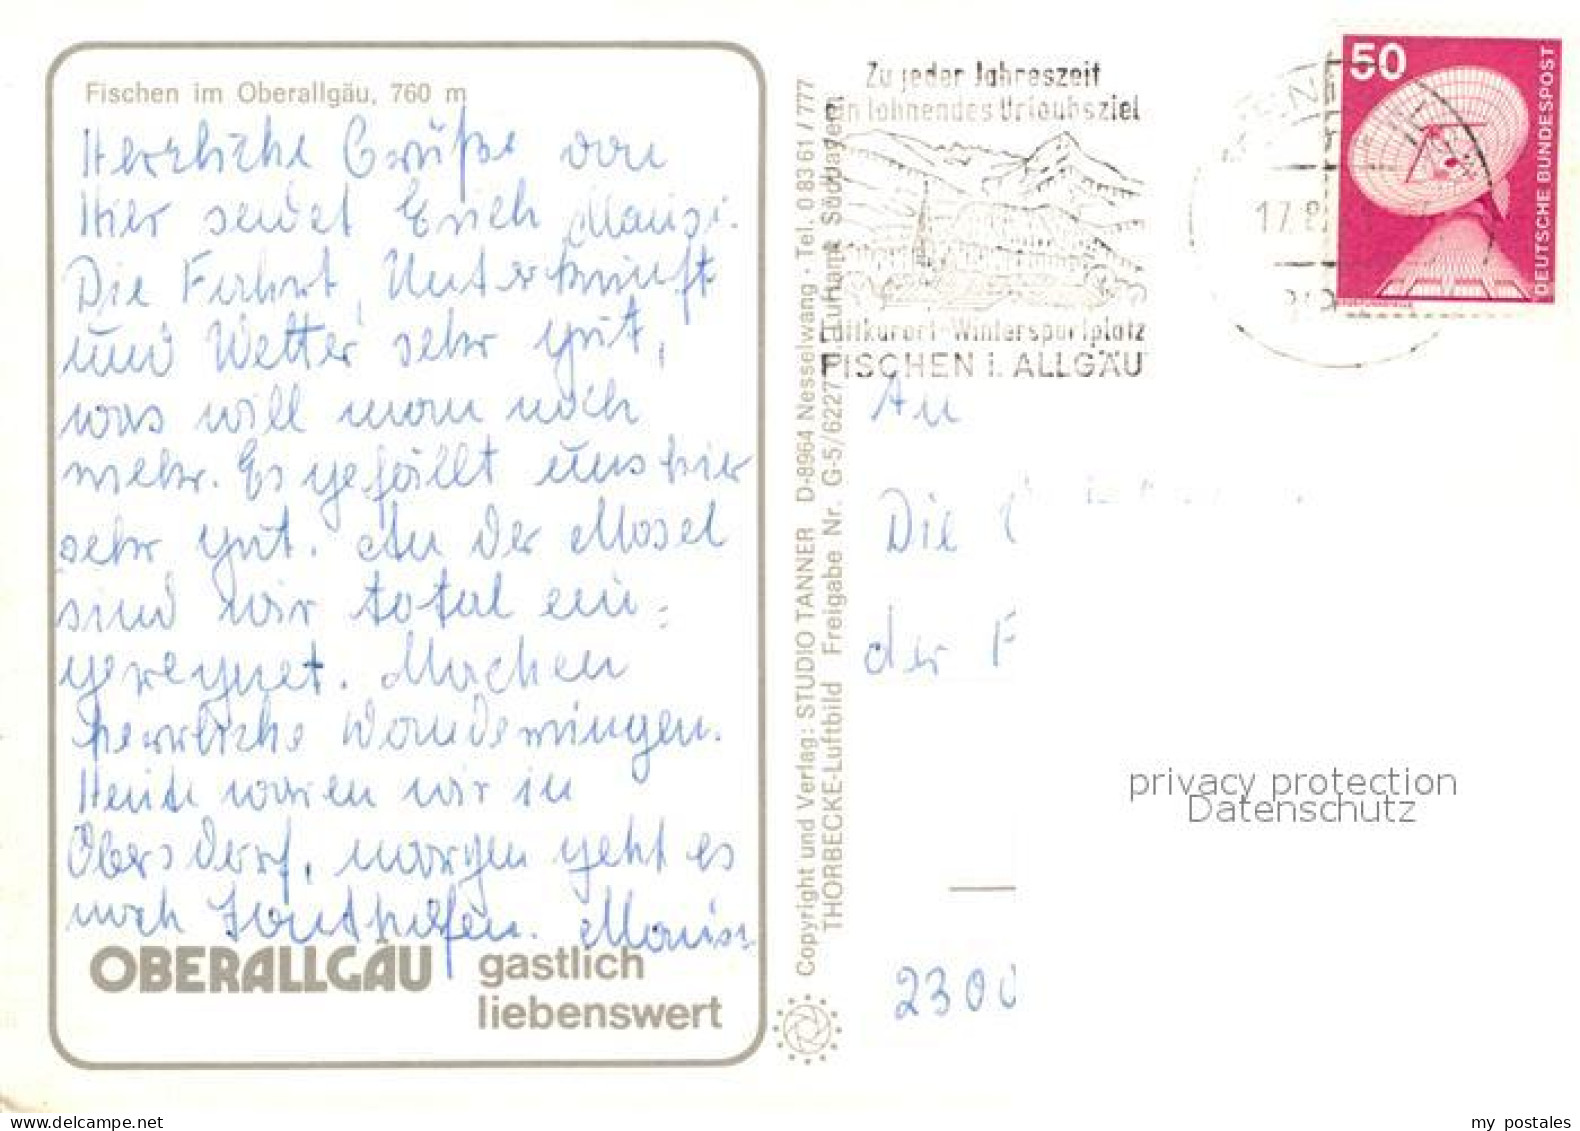 Fischen im Oberallgäu, 760 m
Herzliche Grüße von
Hier sendet Erich Mausi.
Die Fahrt, Unterkunft
und Wetter sehr gut,
was will man noch
mehr. Es gefällt uns hier
sehr gut. An der Mosel
sind wir total ein-
geregnet. Machen
herrliche Wanderungen.
Heute waren wir in
Obersdorf, morgen geht es
nach Sonthofen. Mausi
OBERALLGÄU gastlich
liebenswert
Copyright und Verlag: STUDIO TANNER D-8964 Nesselwang · Tel. 0 83 61 / 777
THORBECKE-Luftbild Freigabe Nr. G-5/6227 Luftamt Südbayern
Zu jeder Jahreszeit
ein lohnendes Urlaubsziel
Luftkurort-Wintersportplatz
FISCHEN i. ALLGÄU
17.8
50
DEUTSCHE BUNDESPOST
An
Die
der F
privacy protection
Datenschutz
2300
my postales